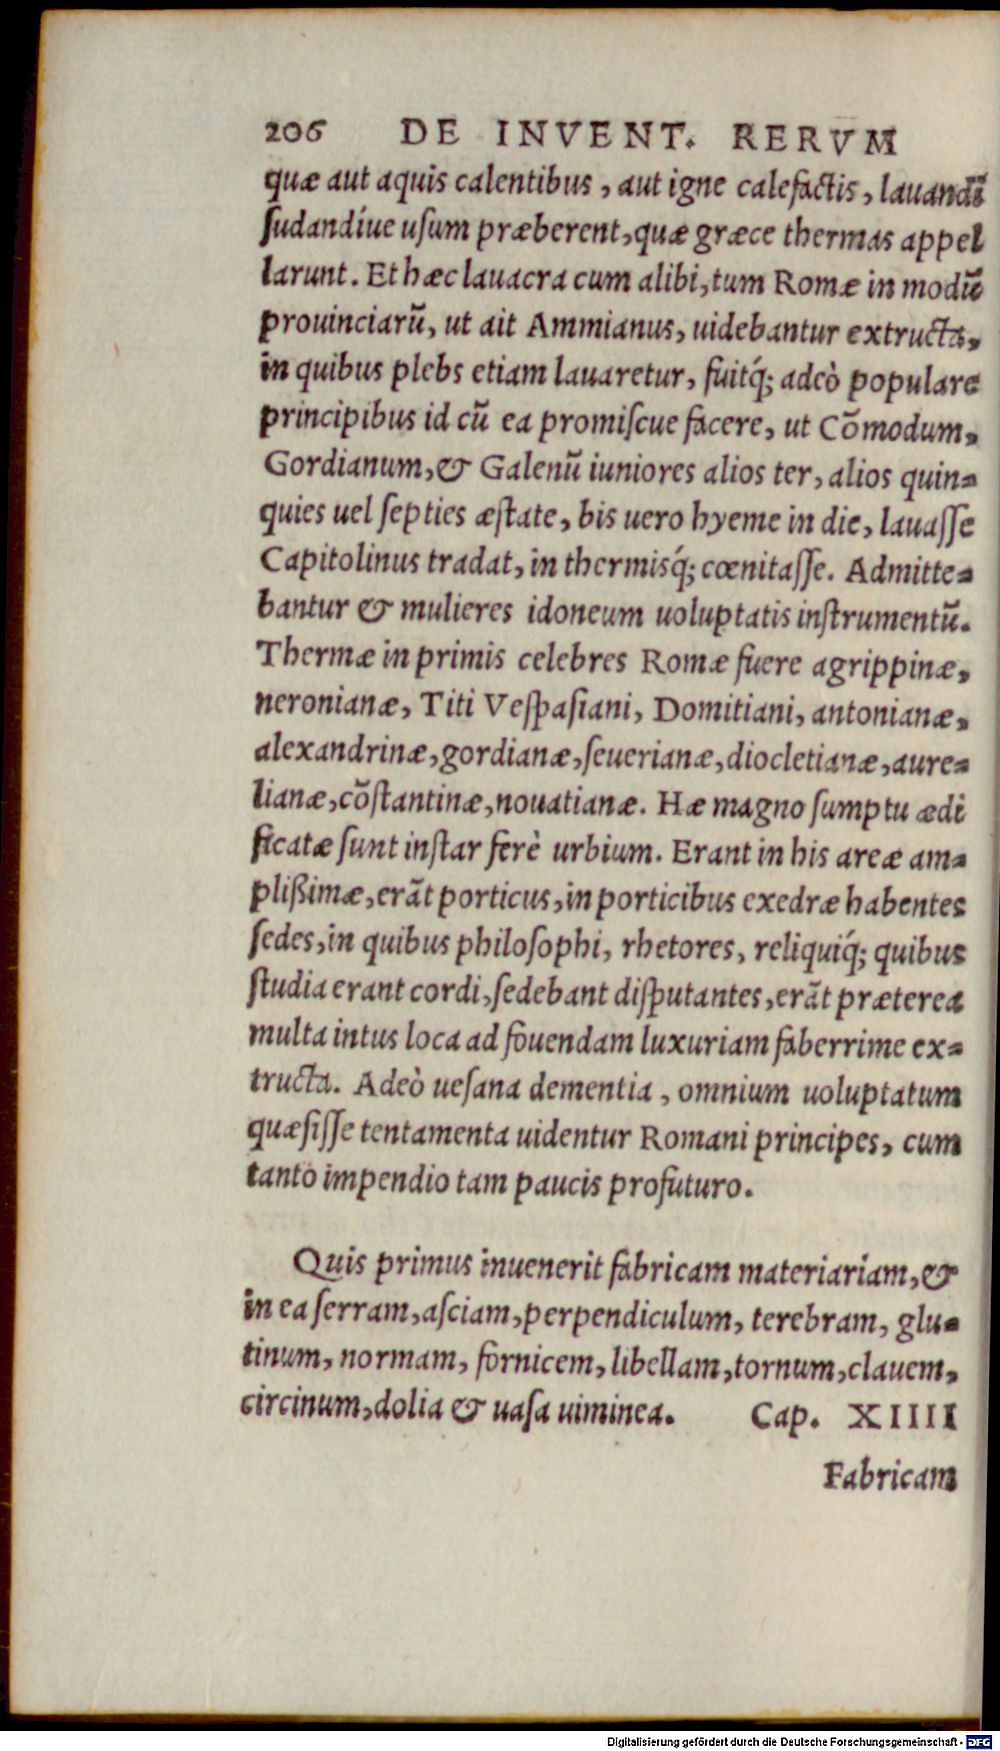 206 DE INVENT. RERVM
quæ aut aquis calentibus, aut igne calefactis, lauandi
ſudandíue uſum præberent, quæ græce thermas appel
larunt. Et hæc lauacra cum alibi, tum Romæ in modũ
prouinciarũ, ut ait Ammianus, uidebantur extructa,
in quibus plebs etiam lauaretur, fuitq́; adeò populare
principibus id cũ ea promiſcue facere, ut Cõmodum,
Gordianum, & Galenũ iuniores alios ter, alios quin-
quies uel ſepties æſtate, bis uero hyeme in die, lauaſſe
Capitolinus tradat, in thermisq́; cœnitaſſe. Admitte-
bantur & mulieres idoneum uoluptatis inſtrumentũ.
Thermæ in primis celebres Romæ fuere agrippinæ,
neronianæ, Titi Veſpaſiani, Domitiani, antonianæ,
alexandrinæ, gordianæ, ſeuerianæ, diocletianæ, aure-
lianæ, cõſtantinæ, nouatianæ. Hæ magno ſumptu ædi
ficatæ ſunt inſtar ferè urbium. Erant in his areæ am-
plißimæ, erãt porticus, in porticibus exedræ habentes
ſedes, in quibus philoſophi, rhetores, reliquiq́; quibus
ſtudia erant cordi, ſedebant diſputantes, erãt præterea
multa intus loca ad fouendam luxuriam faberrime ex-
tructa. Adeò ueſana dementia, omnium uoluptatum
quæſiſſe tentamenta uidentur Romani principes, cum
tanto impendio tam paucis profuturo.
Quis primus inuenerit fabricam materiariam, &
in ea ſerram, aſciam, perpendiculum, terebram, glu-
tinum, normam, fornicem, libellam, tornum, clauem,
circinum, dolia & uaſa uiminea. Cap. XIIII
Fabricam
Digitalisierung gefördert durch die Deutsche Forschungsgemeinschaft - DFG